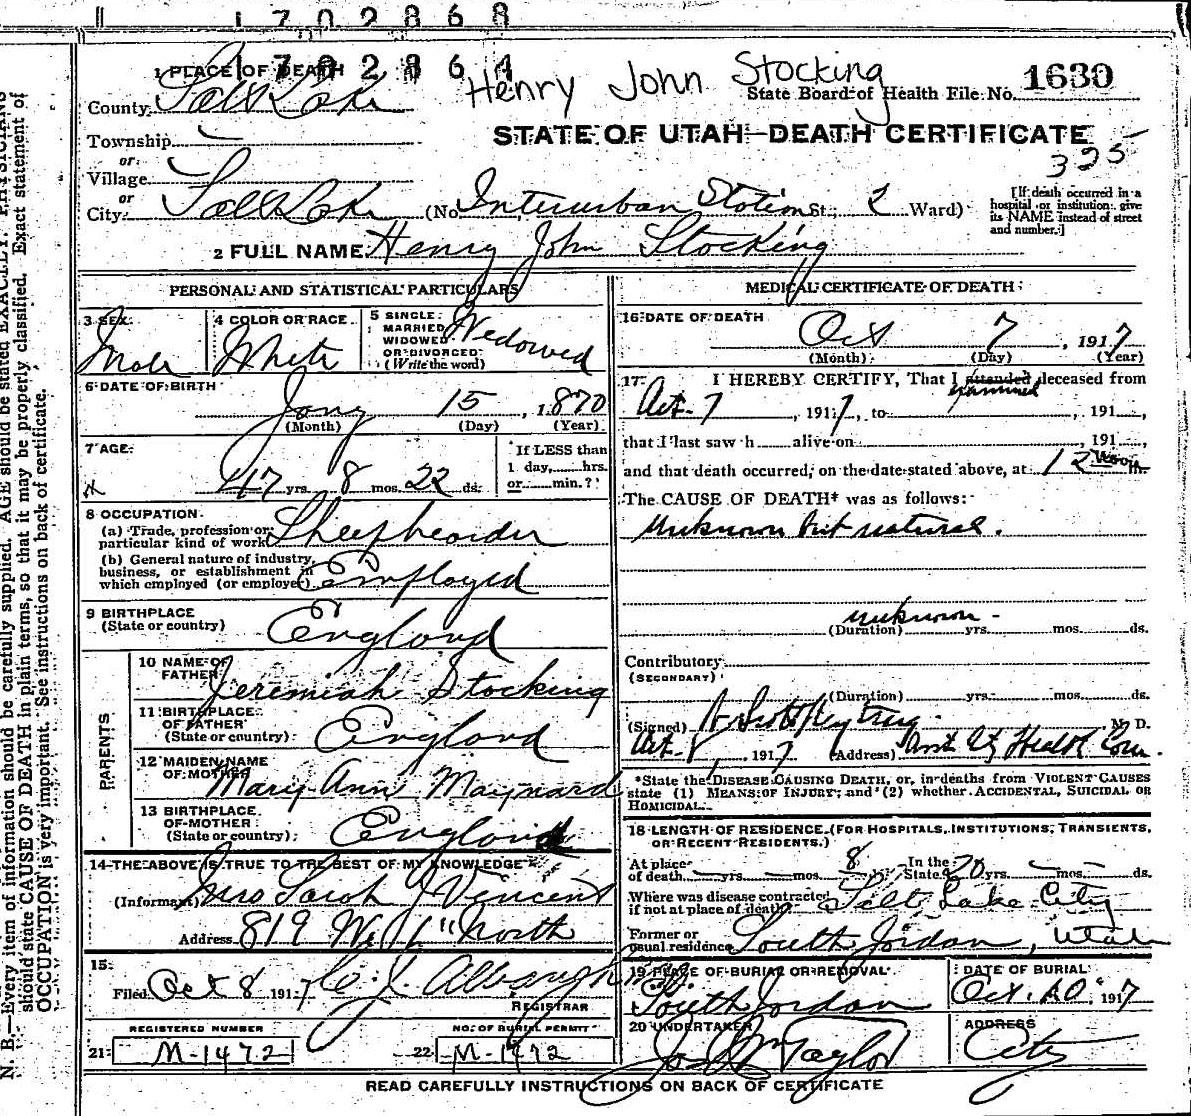 1702868
1702864
Henry John Stocking
1 PLACE OF DEATH
County Salt Lake
State Board of Health File No. 1630
Township
or
STATE OF UTAH—DEATH CERTIFICATE
395
Village
or
City Salt Lake (No. Interurban Station St.; 2 Ward)
[If death occurred in a hospital or institution give its NAME instead of street and number.]
2 FULL NAME Henry John Stocking
PERSONAL AND STATISTICAL PARTICULARS
3 SEX Male
4 COLOR OR RACE White
5 SINGLE MARRIED WIDOWED OR DIVORCED (Write the word) Widowed
6 DATE OF BIRTH
Jany 15, 1870
(Month) (Day) (Year)
7 AGE
47 yrs. 8 mos. 22 ds.
If LESS than 1 day, hrs. or min.?
8 OCCUPATION
(a) Trade, profession or particular kind of work Sheepherder
(b) General nature of industry, business, or establishment in which employed (or employer) Employed
9 BIRTHPLACE (State or country) England
PARENTS
10 NAME OF FATHER Jeremiah Stocking
11 BIRTHPLACE OF FATHER (State or country) England
12 MAIDEN NAME OF MOTHER Mary Ann Maynard
13 BIRTHPLACE OF MOTHER (State or country) England
14 THE ABOVE IS TRUE TO THE BEST OF MY KNOWLEDGE
(Informant) Mrs Sarah J Vincent
Address 819 W North
15
Filed Oct 8 1917
REGISTRAR
REGISTERED NUMBER
21 M-1472
NO. OF BURIAL PERMIT
22 M-1472
MEDICAL CERTIFICATE OF DEATH
16 DATE OF DEATH
Oct 7, 1917
(Month) (Day) (Year)
17 I HEREBY CERTIFY, That I attended examined deceased from
Oct-7, 1917, to , 191 ,
that I last saw h alive on , 191 ,
and that death occurred, on the date stated above, at 12 Noon
The CAUSE OF DEATH* was as follows:
Unknown but natural.
unknown
(Duration) yrs. mos. ds.
Contributory
(SECONDARY)
(Duration) yrs. mos. ds.
(Signed) M. D.
Oct. 8, 1917 (Address) Asst Cty Health Com.
*State the DISEASE CAUSING DEATH, or, in deaths from VIOLENT CAUSES
state (1) MEANS OF INJURY; and (2) whether ACCIDENTAL, SUICIDAL OR
HOMICIDAL.
18 LENGTH OF RESIDENCE (FOR HOSPITALS, INSTITUTIONS, TRANSIENTS,
OR RECENT RESIDENTS.)
At place of death yrs. mos. 8 ds. In the State 20 yrs. mos. ds.
Where was disease contracted if not at place of death? Salt Lake City
Former or usual residence South Jordan, Utah
19 PLACE OF BURIAL OR REMOVAL South Jordan
DATE OF BURIAL Oct. 10, 1917
20 UNDERTAKER Jos Wm Taylor
ADDRESS City
READ CAREFULLY INSTRUCTIONS ON BACK OF CERTIFICATE
N. B.—Every item of information should be carefully supplied. AGE should be stated EXACTLY. PHYSICIANS
should state CAUSE OF DEATH in plain terms, so that it may be properly classified. Exact statement of
OCCUPATION is very important. See instructions on back of certificate.